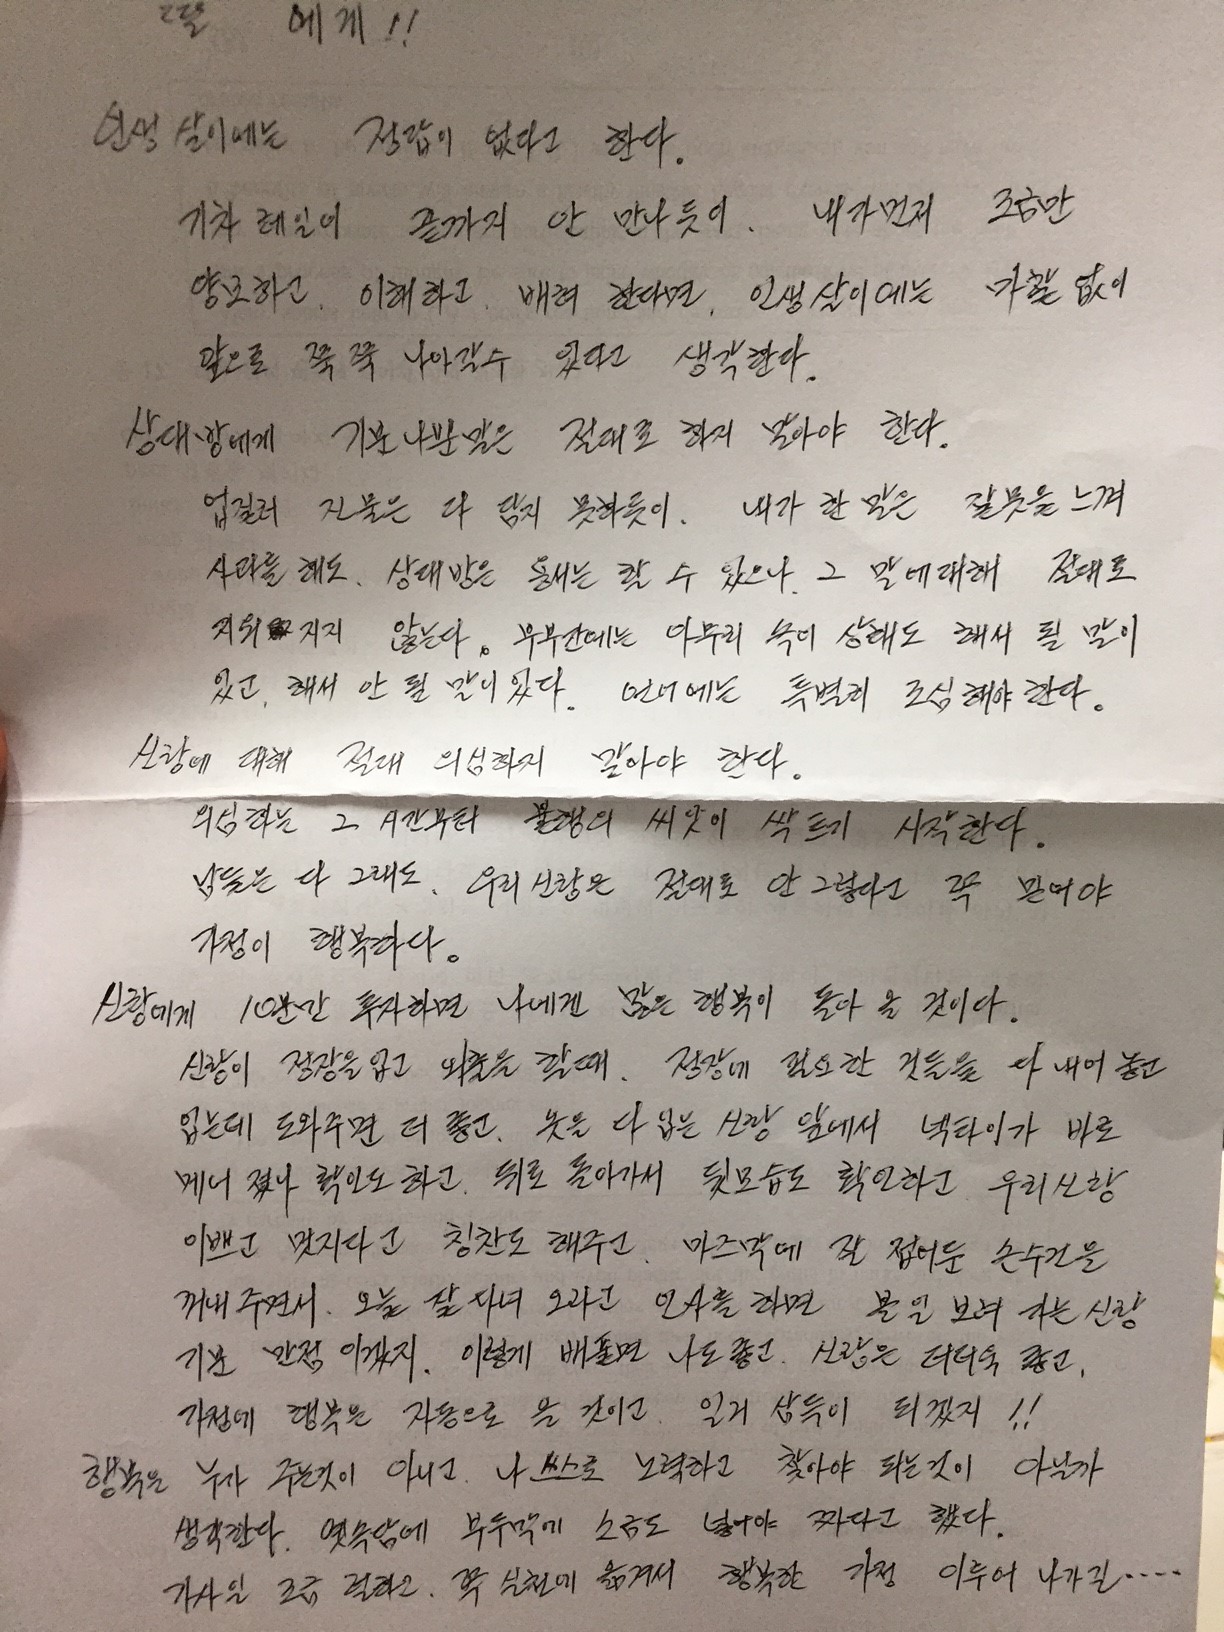 딸 에게!!
인생 살이에는 정답이 없다고 한다.
기차 레일이 끝까지 안 만나듯이. 내가먼저 조금만
양보하고, 이해하고, 배려 한다면, 인생살이에는 마찰 없이
앞으로 쭉 쭉 나아갈수 있다고 생각한다.
상대방에게 기분나쁜말은 절대로 하지 말아야 한다.
업질러 진물은 다 담지 못하듯이. 내가 한 말은 잘못을 느껴
사과를 해도. 상대방은 용서는 할 수 있으나, 그 말에대해 절대로
지워지지 않는다. 부부간에는 아무리 속이 상해도 해서 될 말이
있고, 해서 안 될 말이 있다. 언어에는 특별히 조심해야한다.
신랑에 대해 절대 의심하지 말아야 한다.
의심하는 그 시간부터 불행의 씨앗이 싹트기 시작한다.
남들은 다 그래도. 우리신랑은 절대로 안그렇다고 꼭 믿어야
가정이 행복하다.
신랑에게 10분간 투자하면 나에겐 많은 행복이 돌아 올 것이다.
신랑이 정장을입고 외출을 할때. 정장에 필요한 것들을 다 내어 놓고
입는데 도와주면 더 좋고, 옷을 다 입는 신랑 앞에서 넥타이가 바로
메너 졌나 확인도 하고, 뒤로 돌아가서 뒷모습도 확인하고, 우리신랑
이쁘고 멋지다고 칭찬도 해주고, 마즈막에 잘 접어둔 손수건을
꺼내 주면서. 오늘 잘 다녀 오라고 인사를 하면 볼 일 보려 가는 신랑
기분 만점 이겠지. 이렇게 배풀면 나도좋고. 신랑은 더더욱 좋고,
가정에 행복은 자동으로 올 것이고. 일거 삼득이 되겠지 !!
행복은 누가 주는것이 아니고. 나 쓰스로 노력하고 찾아야 되는것이 아닐까
생각한다. 옛속담에 부두막에 소금도 넣어야 짜다고 했다.
가사일 조금 하고. 꼭 실천에 옮겨서 행복한 가정 이루어 나가길 ····